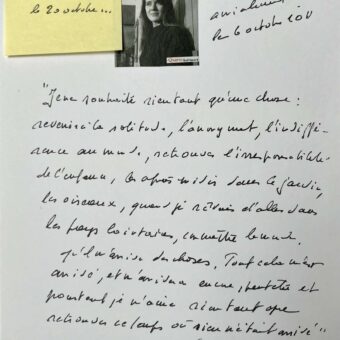 le 20 octobre...
le 6 octobre 2011
"Je ne souhaite rien tant qu'une chose :
revenir à la solitude, l'anonymat, l'indiffé-
rence au monde, retrouver l'irresponsabilité
de l'enfance, les après-midis dans le jardin,
les oiseaux, quand je rêvais d'aller dans
les pays lointains, connaître le monde,
qu'il m'arrive des choses. Tout cela m'est
arrivé, et m'arrivera encore, peut-être et
pourtant je n'aime rien tant que
retrouver ce temps où rien n'était arrivé"